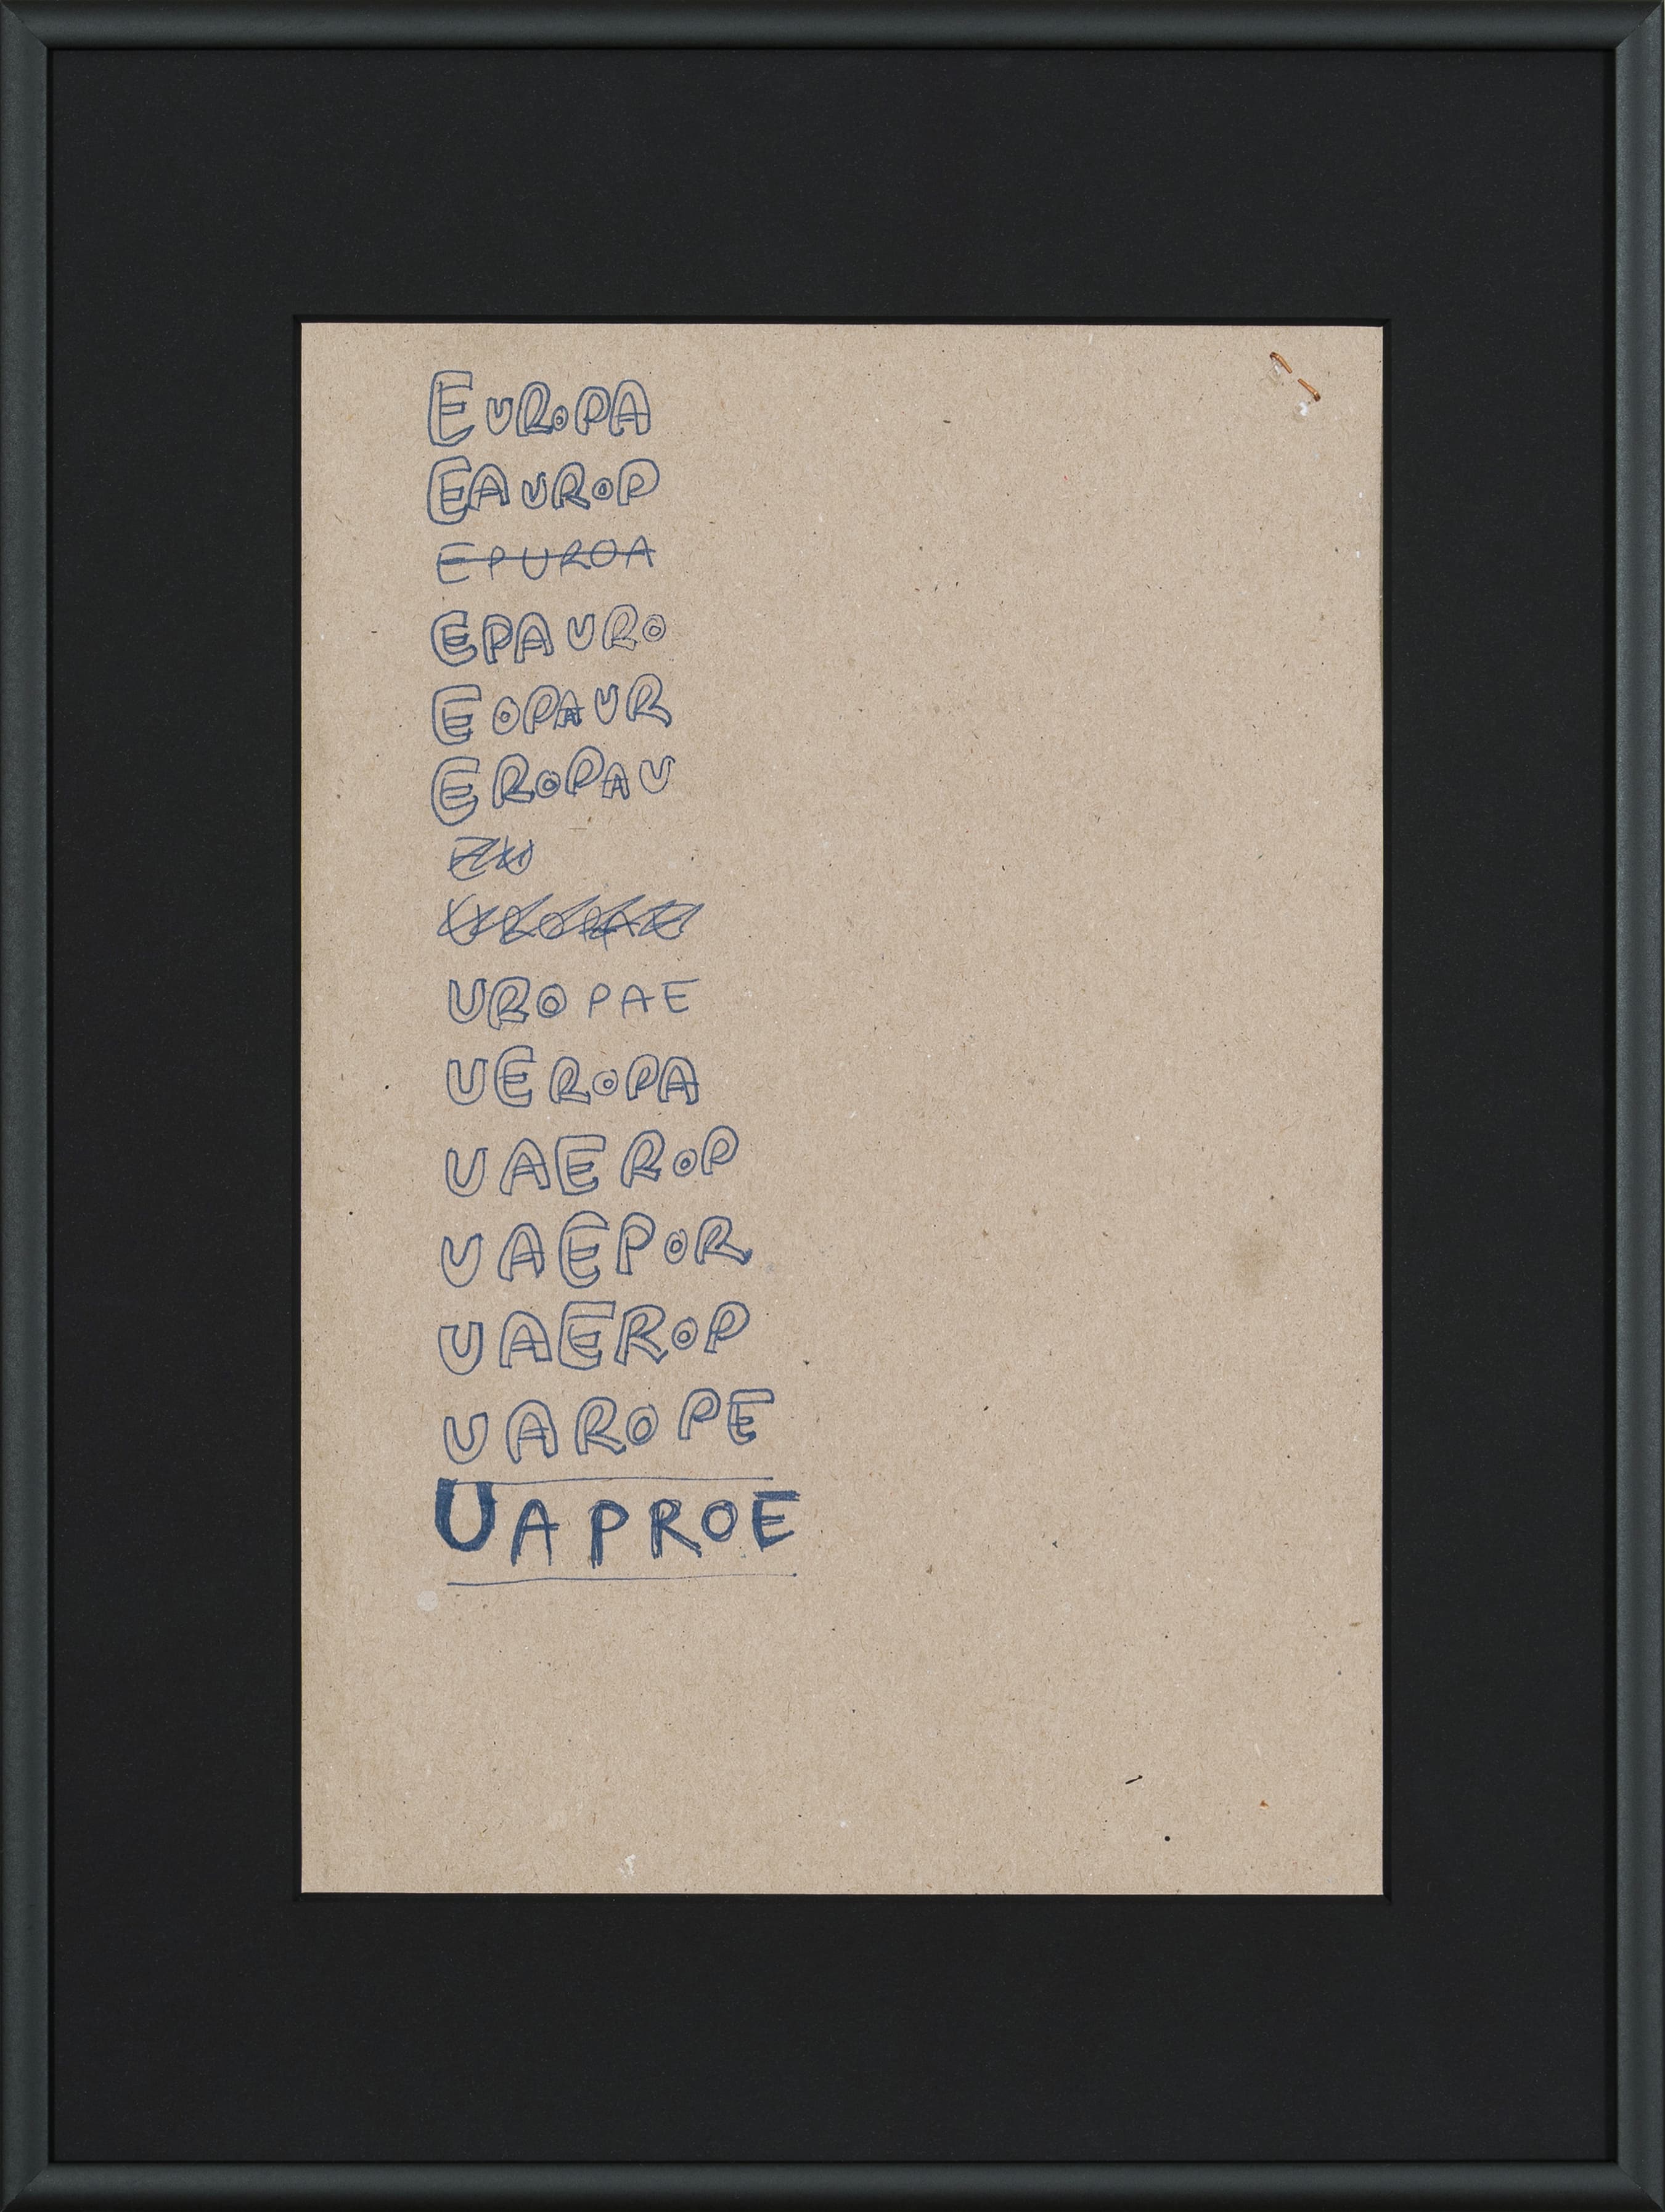 EUROPA
EAUROP
EPUROA
EPAURO
EOPAUR
EROPAU
UROPAE
UEROPA
UAEROP
UAEPOR
UAEROP
UAROPE
UAPROE